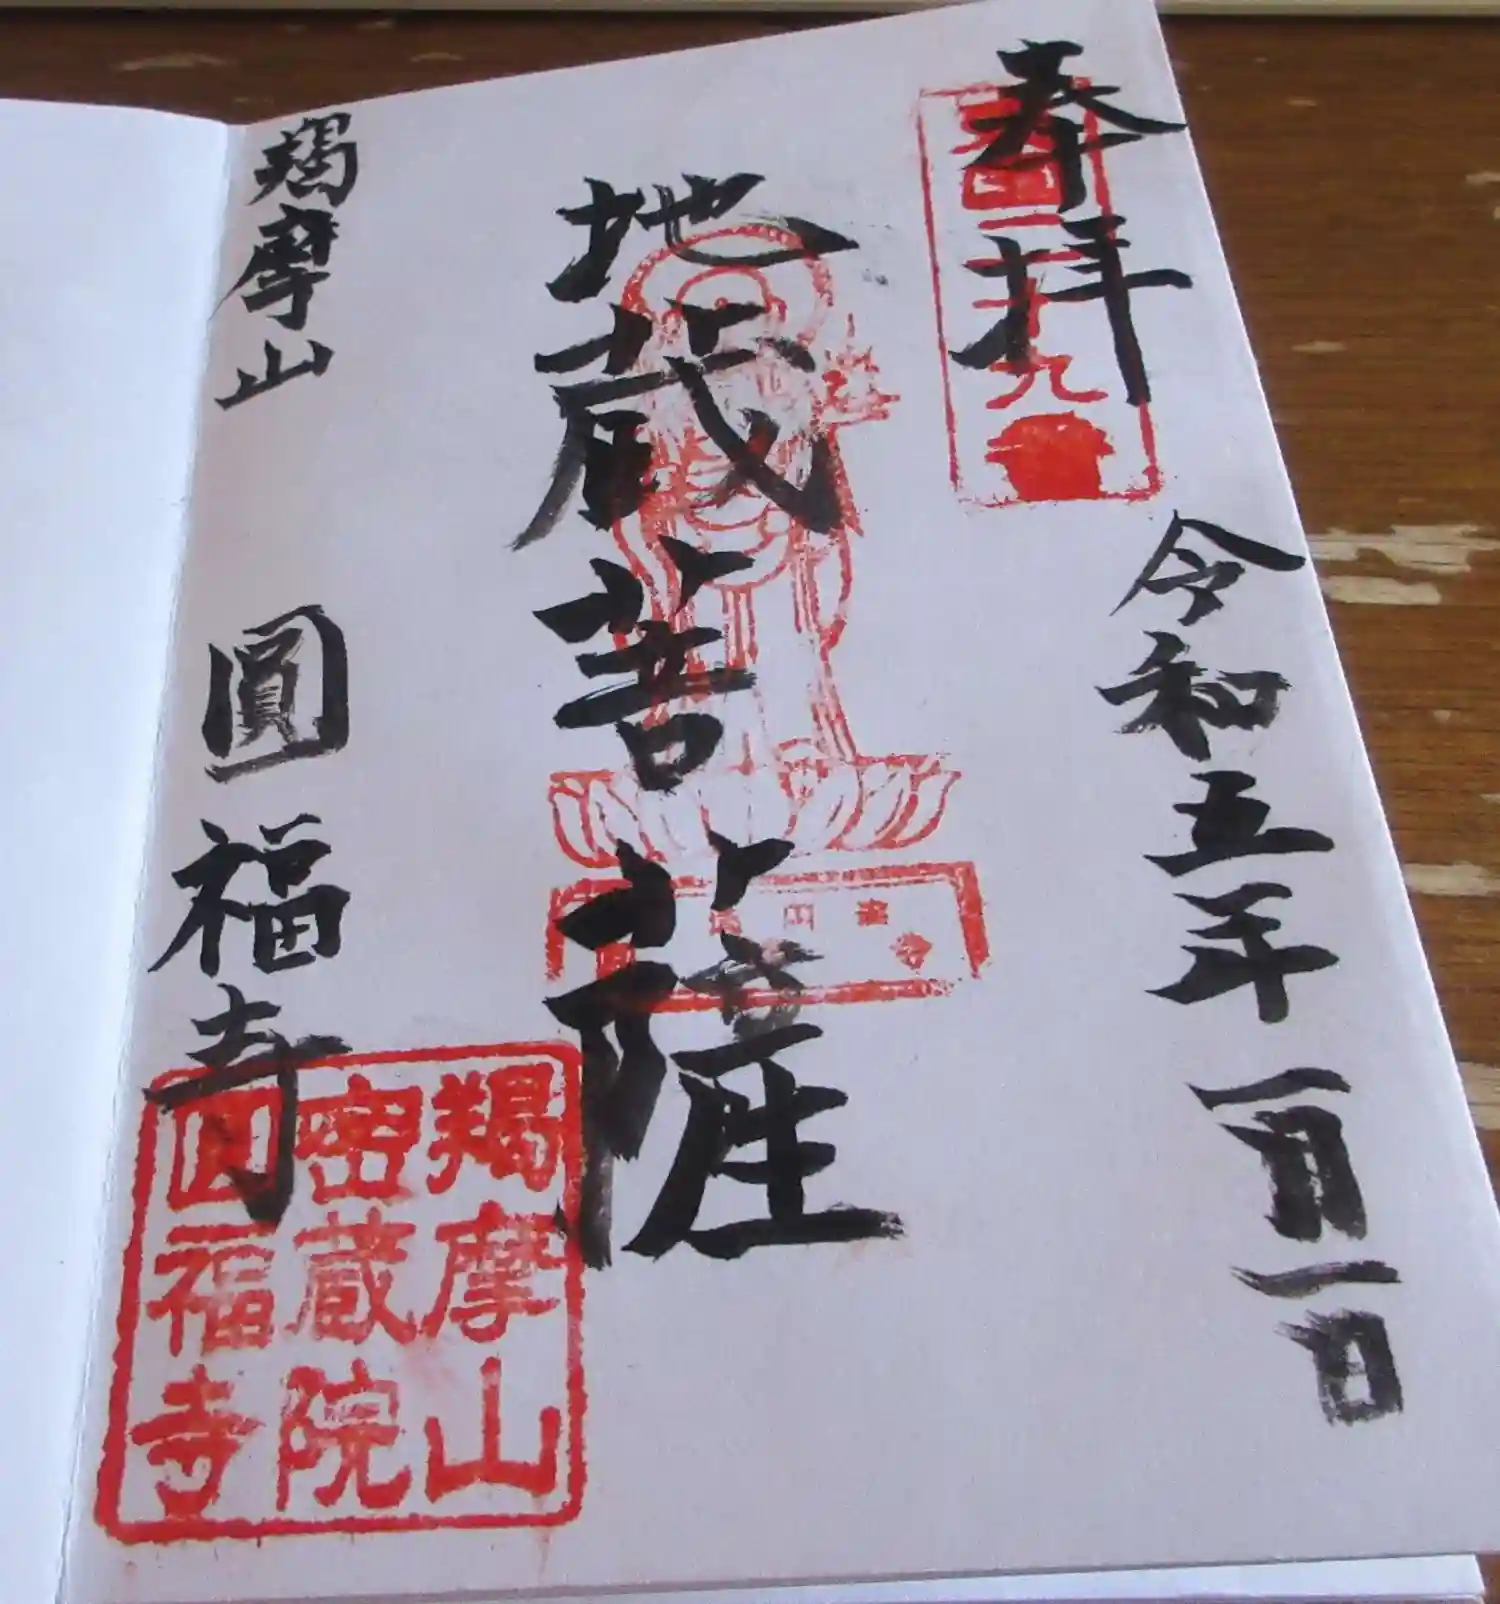 奉拝
令和五年一月一日
地蔵菩薩
羯摩山 圓福寺
羯摩山
密蔵院
圓福寺